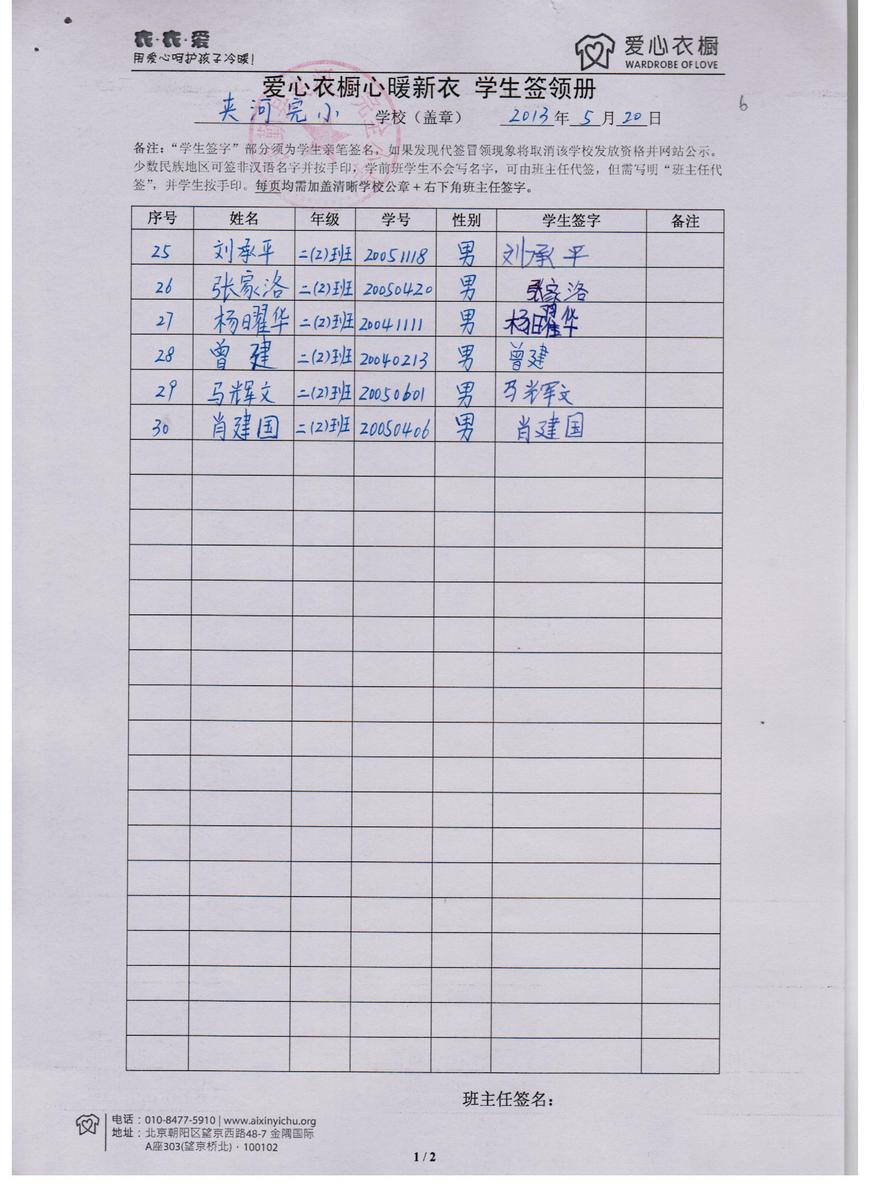 衣·衣·爱
用爱心呵护孩子冷暖！
爱心衣橱
WARDROBE OF LOVE
爱心衣橱心暖新衣 学生签领册
6
夹河完小 学校（盖章） 2013年5月20日
备注：“学生签字”部分须为学生亲笔签名，如果发现代签冒领现象将取消该学校发放资格并网站公示。
少数民族地区可签非汉语名字并按手印，学前班学生不会写名字，可由班主任代签，但需写明“班主任代
签”，并学生按手印。每页均需加盖清晰学校公章+右下角班主任签字。
序号 姓名 年级 学号 性别 学生签字 备注
25 刘承平 二(2)班 20051118 男 刘承平
26 张家洛 二(2)班 20050420 男 张家洛
27 杨曜华 二(2)班 20041111 男 杨曜华
28 曾建 二(2)班 20040213 男 曾建
29 马辉文 二(2)班 20050601 男 马辉文
30 肖建国 二(2)班 20050406 男 肖建国
班主任签名：
电话：010-8477-5910 | www.aixinyichu.org
地址：北京朝阳区望京西路48-7 金隅国际
A座303(望京桥北)·100102
1 / 2